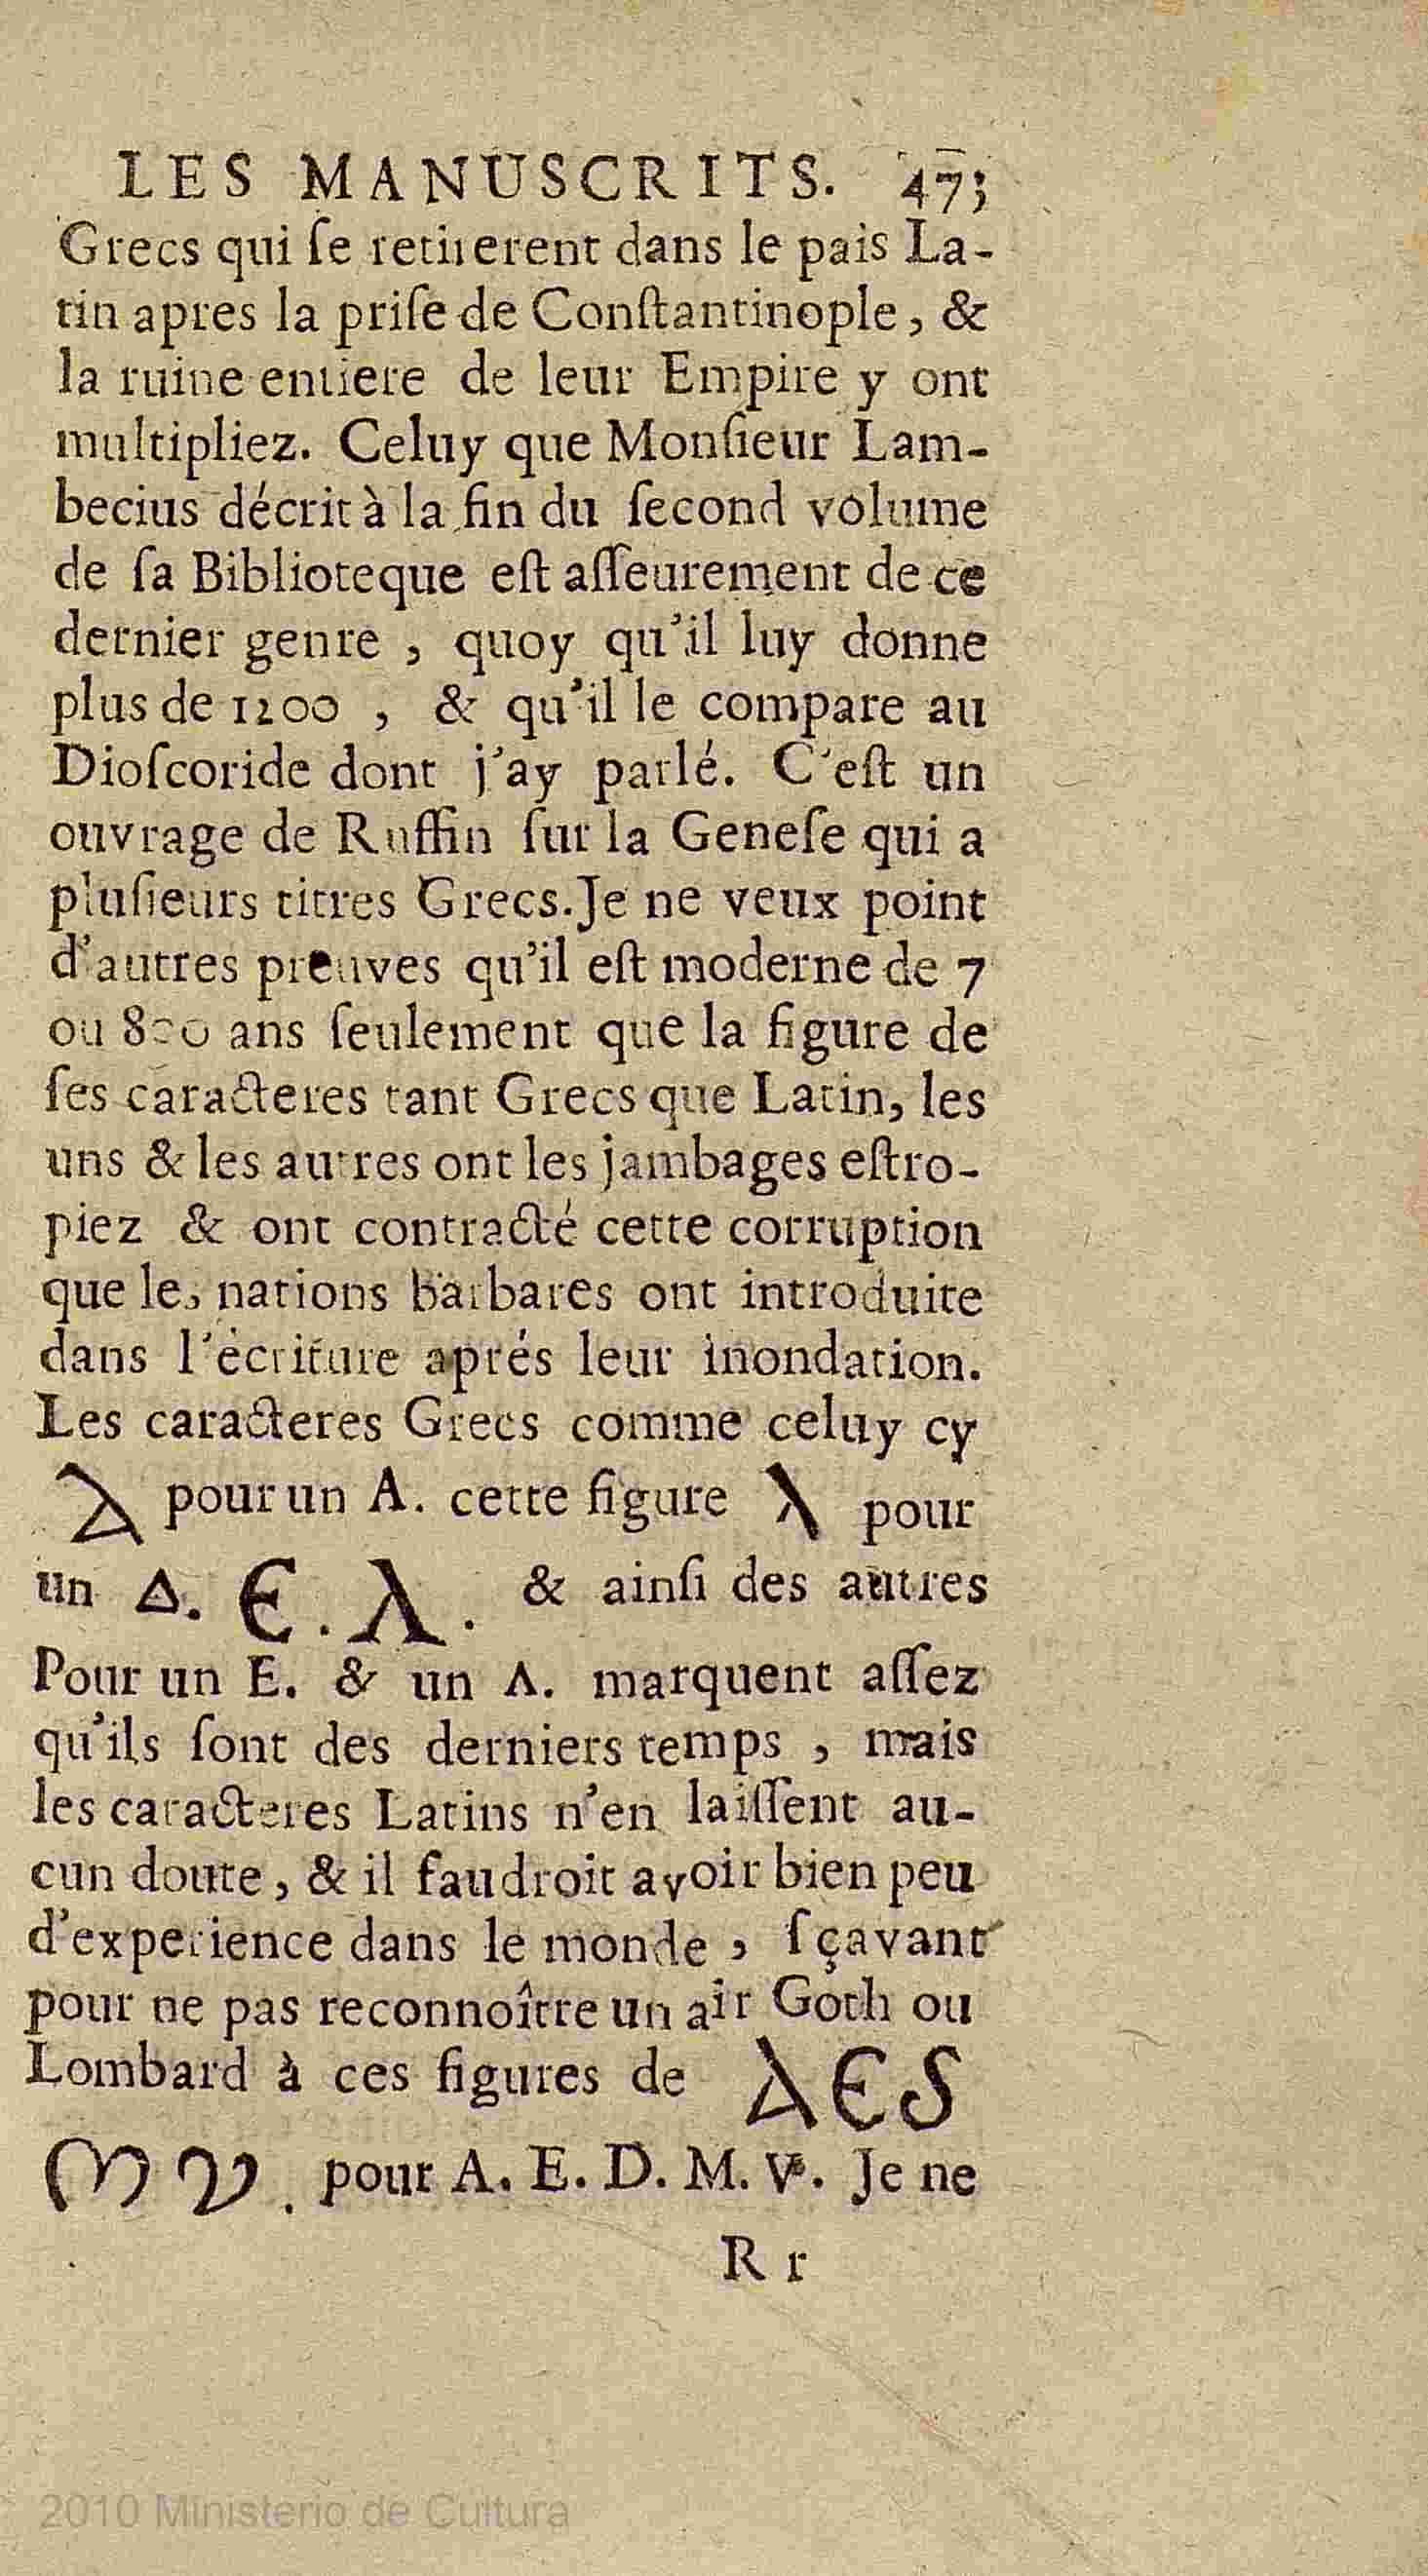 LES MANUSCRITS. 473
Grecs qui ſe retirerent dans le pais La-
tin apres la priſe de Conſtantinople, &
la ruine entiere de leur Empire y ont
multipliez. Celuy que Monſieur Lam-
becius décrit à la fin du ſecond volume
de ſa Biblioteque eſt aſſeurement de ce
dernier genre , quoy qu'il luy donne
plus de 1200 , & qu'il le compare au
Dioſcoride dont j'ay parlé. C'eſt un
ouvrage de Ruffin ſur la Geneſe qui a
pluſieurs titres Grecs. Je ne veux point
d'autres preuves qu'il eſt moderne de 7
ou 800 ans ſeulement que la figure de
ſes caracteres tant Grecs que Latin, les
uns & les autres ont les jambages eſtro-
piez & ont contracté cette corruption
que les nations barbares ont introduite
dans l'écriture aprés leur inondation.
Les caracteres Grecs comme celuy cy
pour un A. cette figure λ pour
un Δ. Є . λ . & ainſi des autres
Pour un E. & un Λ. marquent aſſez
qu'ils ſont des derniers temps , mais
les caracteres Latins n'en laiſſent au-
cun doute, & il faudroit avoir bien peu
d'experience dans le monde , ſçavant
pour ne pas reconnoître un air Goth ou
Lombard à ces figures de A Є S
m v . pour A. E. D. M. V. Je ne
R r
2010 Ministerio de Cultura